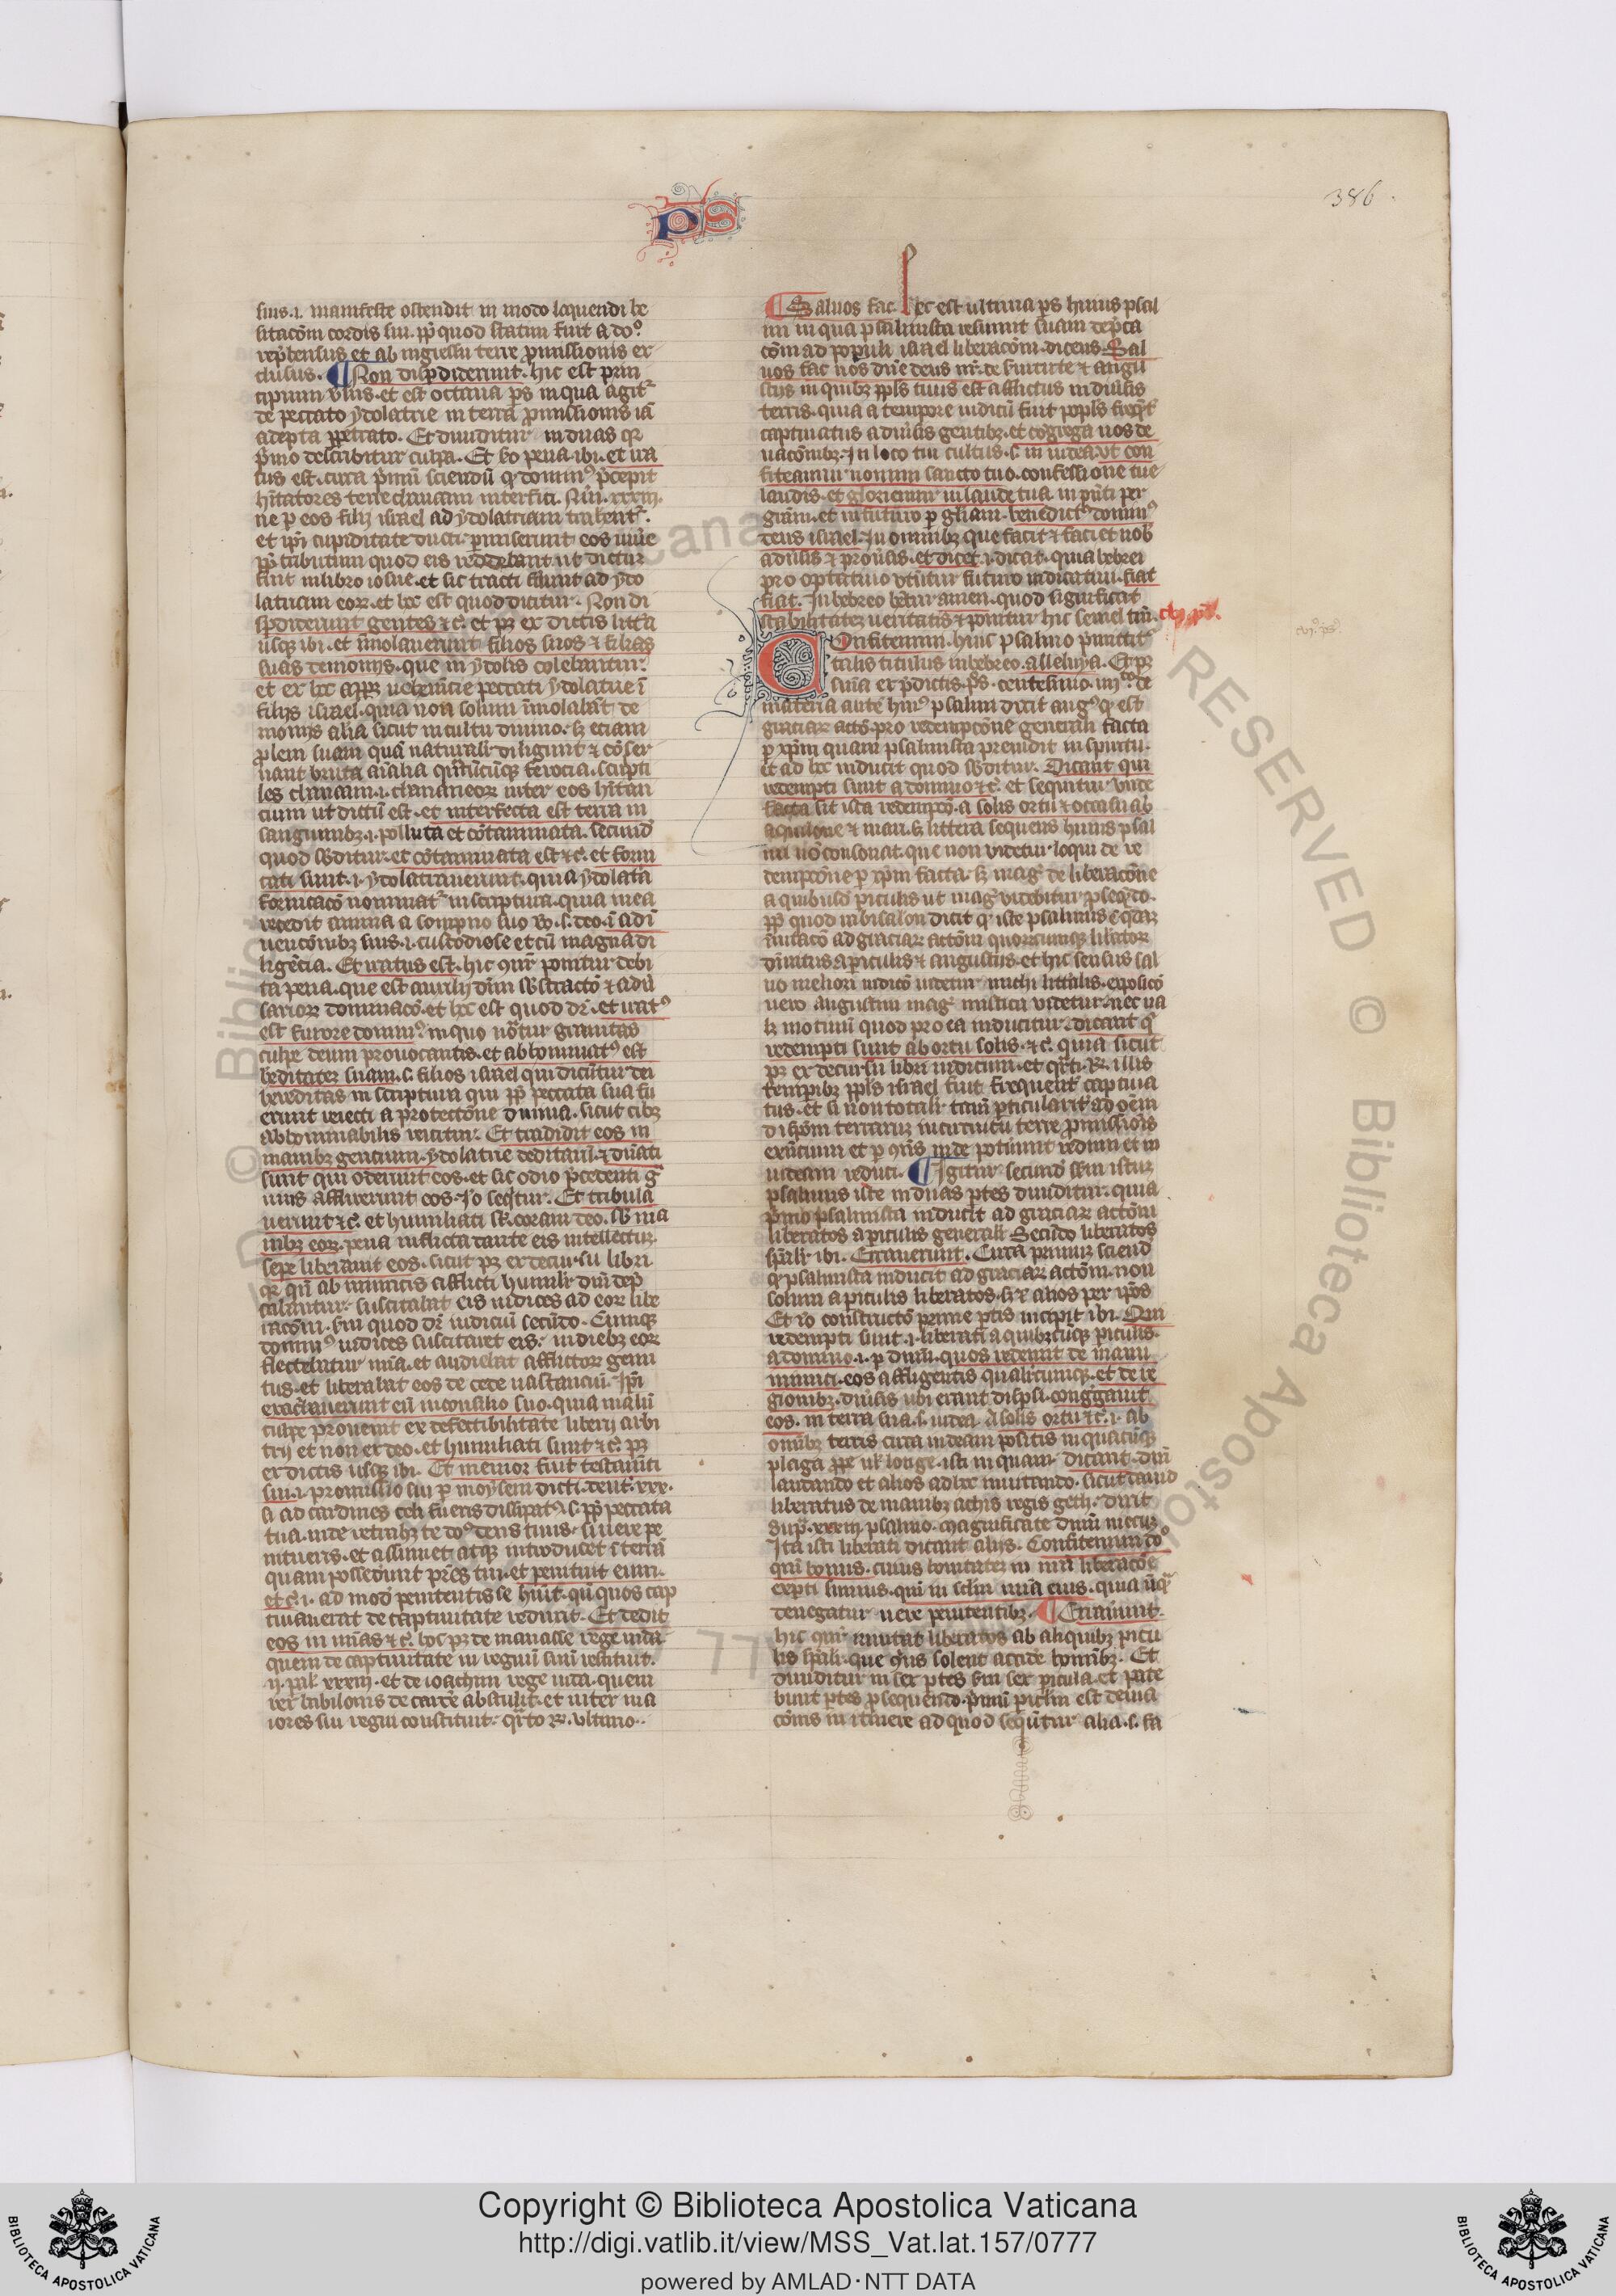 PS
386
suis .i. manifeste ostendit in modo loquendi he
sitacōm cordis sui. ꝓpꝉ quod statim fuit a do⁹
rep̄hensus et ab ingressu terre ꝓmissionis ex
clusus. ¶ Non disꝑdiderunt. hic est prin
cipium ulius. et est octaua ps̄ in qua agit᷑
de peccato ydolatrie in terra ꝓmissionis iā
adepta ꝑpetrato. Et diuiditur in duas q̄
p̄mo describitur culpa. Et s̄o pena. ibi. et ira
tus est. circa p̄mū sciendū qꝫ domin⁹ p̄cepit
hītatores terre chanaan interfici. Nūi. xxxiij.
ne ꝑ eos filij israel ad ydolatriam trahent᷑.
et ip̄i cupiditate ducti ꝑmiserunt eos uiue
ꝓpꝉ tributum quod eis reddebant ut dictur
fuit in libro iosue. et sic tracti fuerunt ad ydo
latriam eoꝝ. et hoc est quod dicitur. Non di
sꝑdiderunt gentes ⁊c̄. et pꝫ ex dictis litt̄a
usqꝫ ibi. et īmolauerunt filios suos ⁊ filias
suas demonijs. que in ydolis colebantur.
et ex hoc apꝑꝫ uehemēcie peccati ydolatrie ī
filijs israel. quia non solum īmolabāt de
monijs alia sicut in cultu diuino. sꝫ eciam
ꝓlem suam quā naturalit᷑ diligunt ⁊ cōser
uant bruta aīalia quātūcūqꝫ ferocia. sculpti
les chanaan .i. chananeoꝝ inter eos hītan
cium ut dictū est. et interfecta est terra in
sanguinibꝫ .i. polluta et cōtaminata. secund̄
quod s̄bditur. et cōtaminata est ⁊c̄. et forni
cati sunt .i. ydolatrauerunt. quia ydolatīa
fornicacō nominat᷑ in scriptura. quia mea
recedit anima a sompno suo uo .s. deo. ī adī
uencōnibꝫ suis .i. custodiose et cū magna di
ligēcia. Et iratus est. hic ꝯn̄r ponitur debi
ta pena. que est auxilij diuīn s̄btractō ⁊ adū
sarioꝝ dominacō. et hoc est quod dr̄. et irat⁹
est furore domin⁹ in quo notatur grauitas
culpe deum prouocantis. et abhominat⁹ est
heditatē suam .s. filios israel qui dicūtur dei
hereditas in scriptura qui ꝓpꝉ peccata sua fu
erunt reiecti a protectōne diuina. sicut cibꝫ
abhominabilis reicitur. Et tradidit eos in
manibꝫ gencium. ydolatrie deditarū. ⁊ dn̄ati
sunt qui oderunt eos. et sic odio p̄cedenti g̃
uius afflixerunt eos. Jo seq̄tur. Et tribula
uerunt ⁊c̄. et humiliati s̄t. coram deo. s̄b ma
nibꝫ eoꝝ. pena inflicta dante eis intellectū.
sepe liberauit eos. sicut pꝫ ex decursu libri
qꝫ qn̄ ab inimicis afflicti humilit᷑ dn̄m dep̄
cabantur. suscitabat eis iudices ad eoꝝ libe
racōm. s̄m quod dr̄ iudicū secūdo. Cumqꝫ
domin⁹ iudices suscitaret eis. in diebꝫ eoꝝ
flectebatur mīa. et audiebat afflictoꝝ gemi
tus. et liberabat eos de cede uastanciū. Ip̄i
exacerbauerunt eū in consilio suo. quia malū
culpe prouenit ex defectibilitate liberi arbi
trij et non ex deo. et humiliati sunt ⁊c̄. pꝫ
ex dictis usqꝫ ibi. Et memor fuit testamēti
sui .i. promissio sui ꝑ moysem dicti. deut̄. xxx.
Si ad cardines celi fueris dissipat⁹ .s. ꝓpꝉ peccata
tua. inde retrahꝫ te do⁹ deus tuus. si uere pe
nitueris. et assumet atqꝫ introducet ī terrā
quam possederunt pr̄es tui. et penituit eum.
et c̄. i. ad modū penitentis se hūit. qn̄ quos cap
tiuauerat de captiuitate reduxit. Et dedit
eos in mīas ⁊c̄. hoc pꝫ de manasse rege iuda
quem de captiuitate in regnū suū restituit.
ij. paꝉ. xxxiij. et de ioachim rege iuda. quem
rex babilonis de carcere abstulit. et inter ma
iores sui regni constituit. qꝛto ꝝ. ultimo.
¶ Saluos fac hec est ultima ps̄ huius psal
mi in qua psalmista resumit suam dep̄ca
cōm ad populi israel liberacōm. dicens. Sal
uos fac nos dn̄e deus nr̄. de seruitute ⁊ angu
stijs in quibꝫ ppl̄s tuus est afflictus in diūsis
terris. quia a tempore iudicū fuit popl̄s freq̄nt᷑
captiuatus a diūsis gentibꝫ. et cōgrega nos de
nacōnibꝫ. In loco tui cultus .s. in iudea. vt con
fiteamur nomini sancto tuo. confessione tue
laudis. et gloriemur in laude tua. in p̄nti per
grām. et in futuro ꝑ gl̄iam. benedict⁹ domin⁹
deus israel. In omnibꝫ que facit ⁊ faciet nob̄
adūsis ⁊ prosꝑis. et dicet .i. dicat. quia hebrei
pro optatiuo utūtur futuro indicatiui. fiat
fiat. In hebreo hētur amen. quod significat
stabilitatē ueritatis ⁊ ponitur hic semel tm̄.
cvj. ps̄.
Confitemini. huic psalmo p̄mittit᷑
talis titulus in hebreo. alleluya. Et pꝫ
suia ex p̄dictis. ps̄. centesimo. iiij⁰. de
materia autē hui⁹ psalmi dicit aug⁹ qꝫ est
graciaꝝ actō. pro redempcōne generali facta
ꝑ xp̄m quam psalmista preuidit in spiritu.
et ad hoc inducit quod s̄bditur. Dicant qui
redempti sunt a domino ⁊c̄. et sequitur vnde
facta sit ista redempcō. a solis ortu ⁊ occasu ab
aquilone ⁊ mari. sꝫ littera sequens huius psal
mi nō consonat. que non videtur loqui de re
dempcōne ꝑ xp̄m facta. sꝫ mag᷑ de liberacōne
a quibusdā ꝑiculis ut mag᷑ videbitur ꝓseqn̄do.
ꝓpꝉ quod rabi salon dicit qꝫ iste psalmus ē qd̄aꝫ
inuitacō ad graciaꝝ actōm quoꝝcumqꝫ libatoꝝ
diuītus a ꝑiculis ⁊ angustijs. et hic sensus sal
uo meliori iudicō uidetur michi littālis. exposicō
uero augustini mag᷑ mistica videtur. nec ua
let motiuū quod pro ea inducitur. dicant qⁱ
redempti sunt ab ortu solis ⁊c̄. quia sicut
pꝫ ex decursu libri iudicum. et qꝛti. ꝝ. illis
tempībꝫ ppl̄s israel fuit frequent᷑ captiua
tus. et si non totalit᷑ tam̄ ꝑticularit᷑ ad oēm
disꝑsōm terraruꝫ in circuitu terre ꝓmissiōis
exeūcium et ꝑ ꝯn̄s inde potuerunt redimi et in
iudeam reduci. ¶ Igitur secund̄ s̄niam istaꝫ
psalmus iste in duas ꝑtes diuiditur. quia
p̄mo psalmista inducit ad graciaꝝ actōm
liberatos a ꝑiculis generalit᷑. Secūdo liberatos
sp̄alit᷑. ibi. Errauerunt. Circa primuꝫ sciend̄
qꝫ psalmista inducit ad graciaꝝ actōm. non
solum a ꝑiculis liberatos. sꝫ ⁊ alios per ip̄os
Et iō constructō prime ꝑtis incipit ibi. Qui
redempti sunt .i. liberati a quibꝫcūqꝫ ꝑiculis.
a domino .i. ꝑ dn̄m. quos redemit de manu
inimici. eos affligentis qualitcumqꝫ. et de re
gionibꝫ. diūsis ubi erant disꝑsi. cong̃gauit
eos. in terra sua .s. iudea. A solis ortu ⁊c̄. i. ab
omībꝫ terris circa iudeam positis in quacūqꝫ
plaga ꝓpe uꝉ longe. isti in quam dicant. dn̄m
laudando et alios ad hoc inuitando. sicut dauid
liberatus de manibꝫ achis regis geth. dixit
sup̄. xxxiij. psalmo. Magnificate dn̄m mecuꝫ.
Ita isti liberati dicant alijs. Confitemini do⁰
qm̄ bonus. cuius bonitatem in nr̄a liberacōe
exꝑti sumus. qm̄ in sclm̄ mīa eius. quia nūqꝫ
denegatur uere penitentibꝫ. ¶ Errauerunt.
hic ꝯn̄r inuitat liberatos ab aliquibꝫ ꝑicu
lis sp̄alit᷑. que ꝯīs solent accide homībꝫ. Et
diuiditur in sex ꝑtes s̄m sex ꝑicula. et pate
bunt ꝑtes ꝓsequendo. p̄mū ꝑiclm̄ est deuia
cōnis in itinere ad quod seq̄ūtur alia .s. fa
cvj⁰. ps̄⁰.
Copyright © Biblioteca Apostolica Vaticana
http://digi.vatlib.it/view/MSS_Vat.lat.157/0777
powered by AMLAD·NTT DATA
BIBLIOTECA APOSTOLICA VATICANA
BIBLIOTECA APOSTOLICA VATICANA